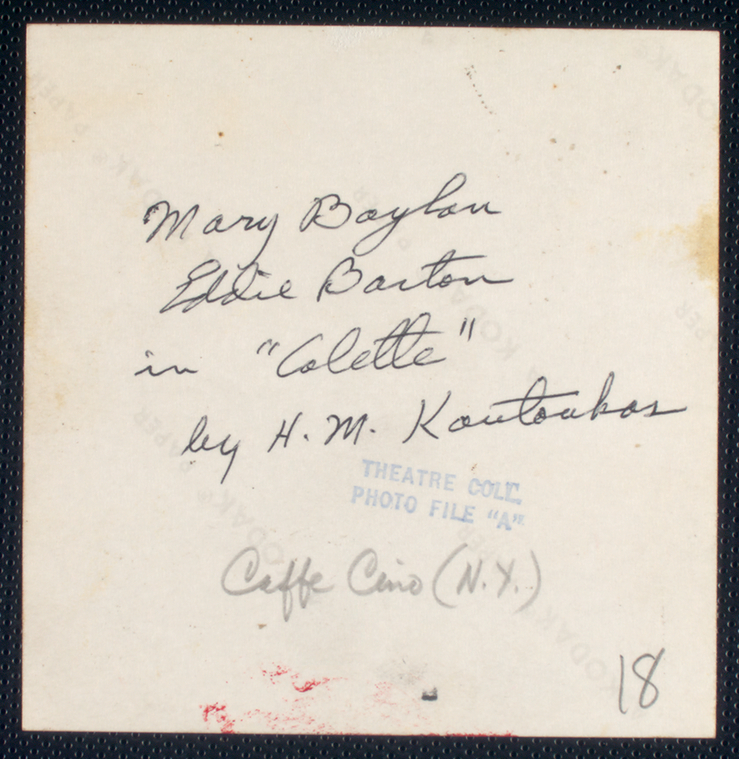 Mary Boylan
Eddie Barton
in "Colette"
by H. M. Koutoukas
THEATRE COLL.
PHOTO FILE "A"
Caffe Cino (N.Y.)
18
KODAK
PAPER